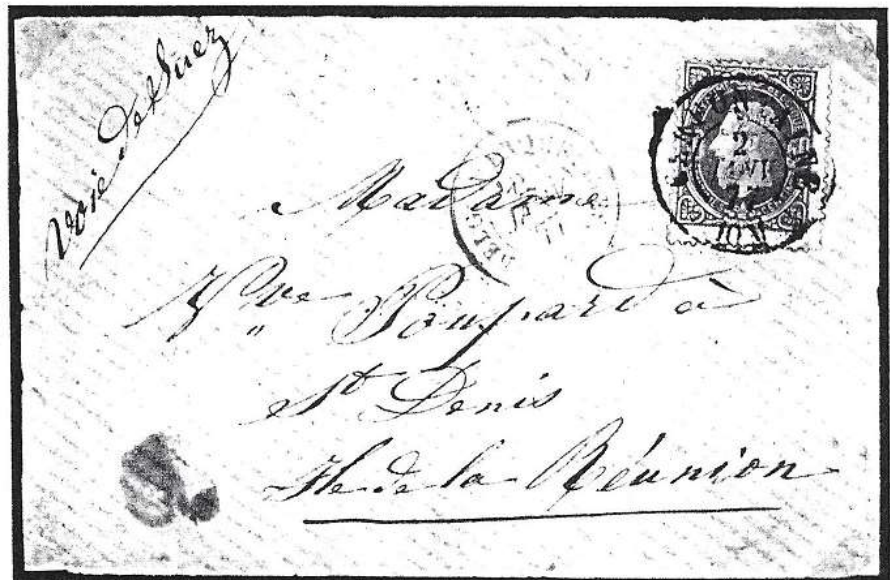 Voie de Suez
Madame
Vve Poupard à
St Denis
Ile de la Réunion